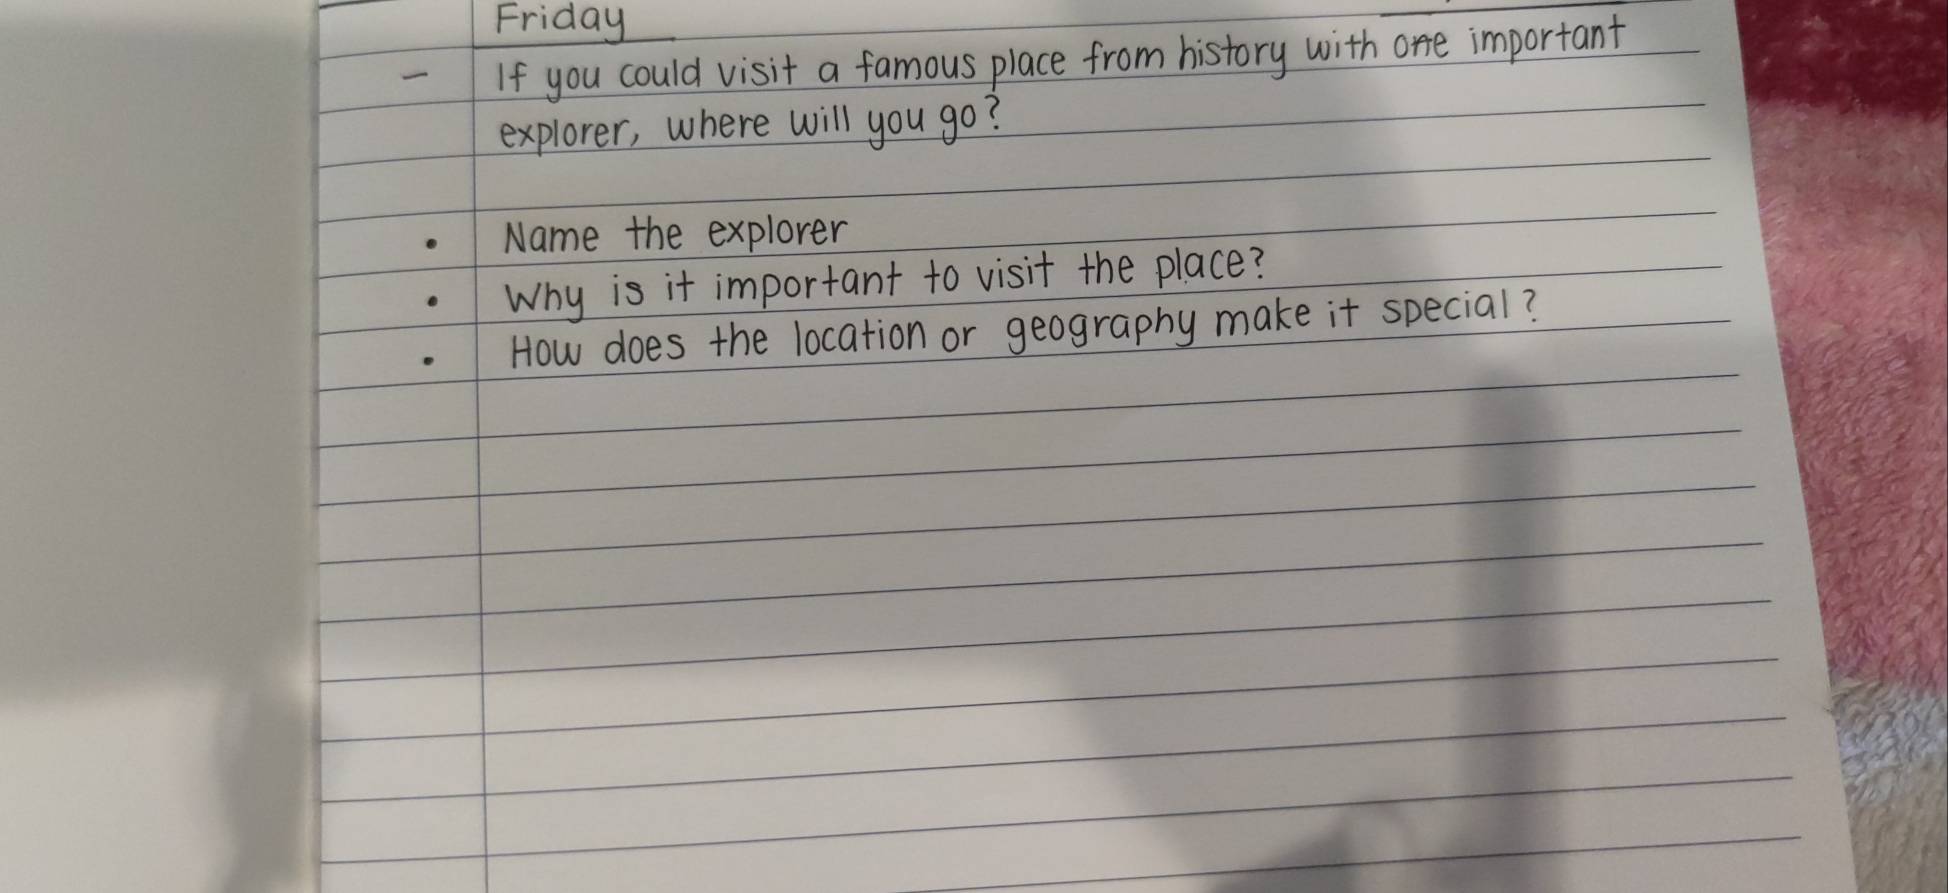 Friday
- If you could visit a famous place from history with one important
explorer, where will you go?
• Name the explorer
• Why is it important to visit the place?
• How does the location or geography make it special?